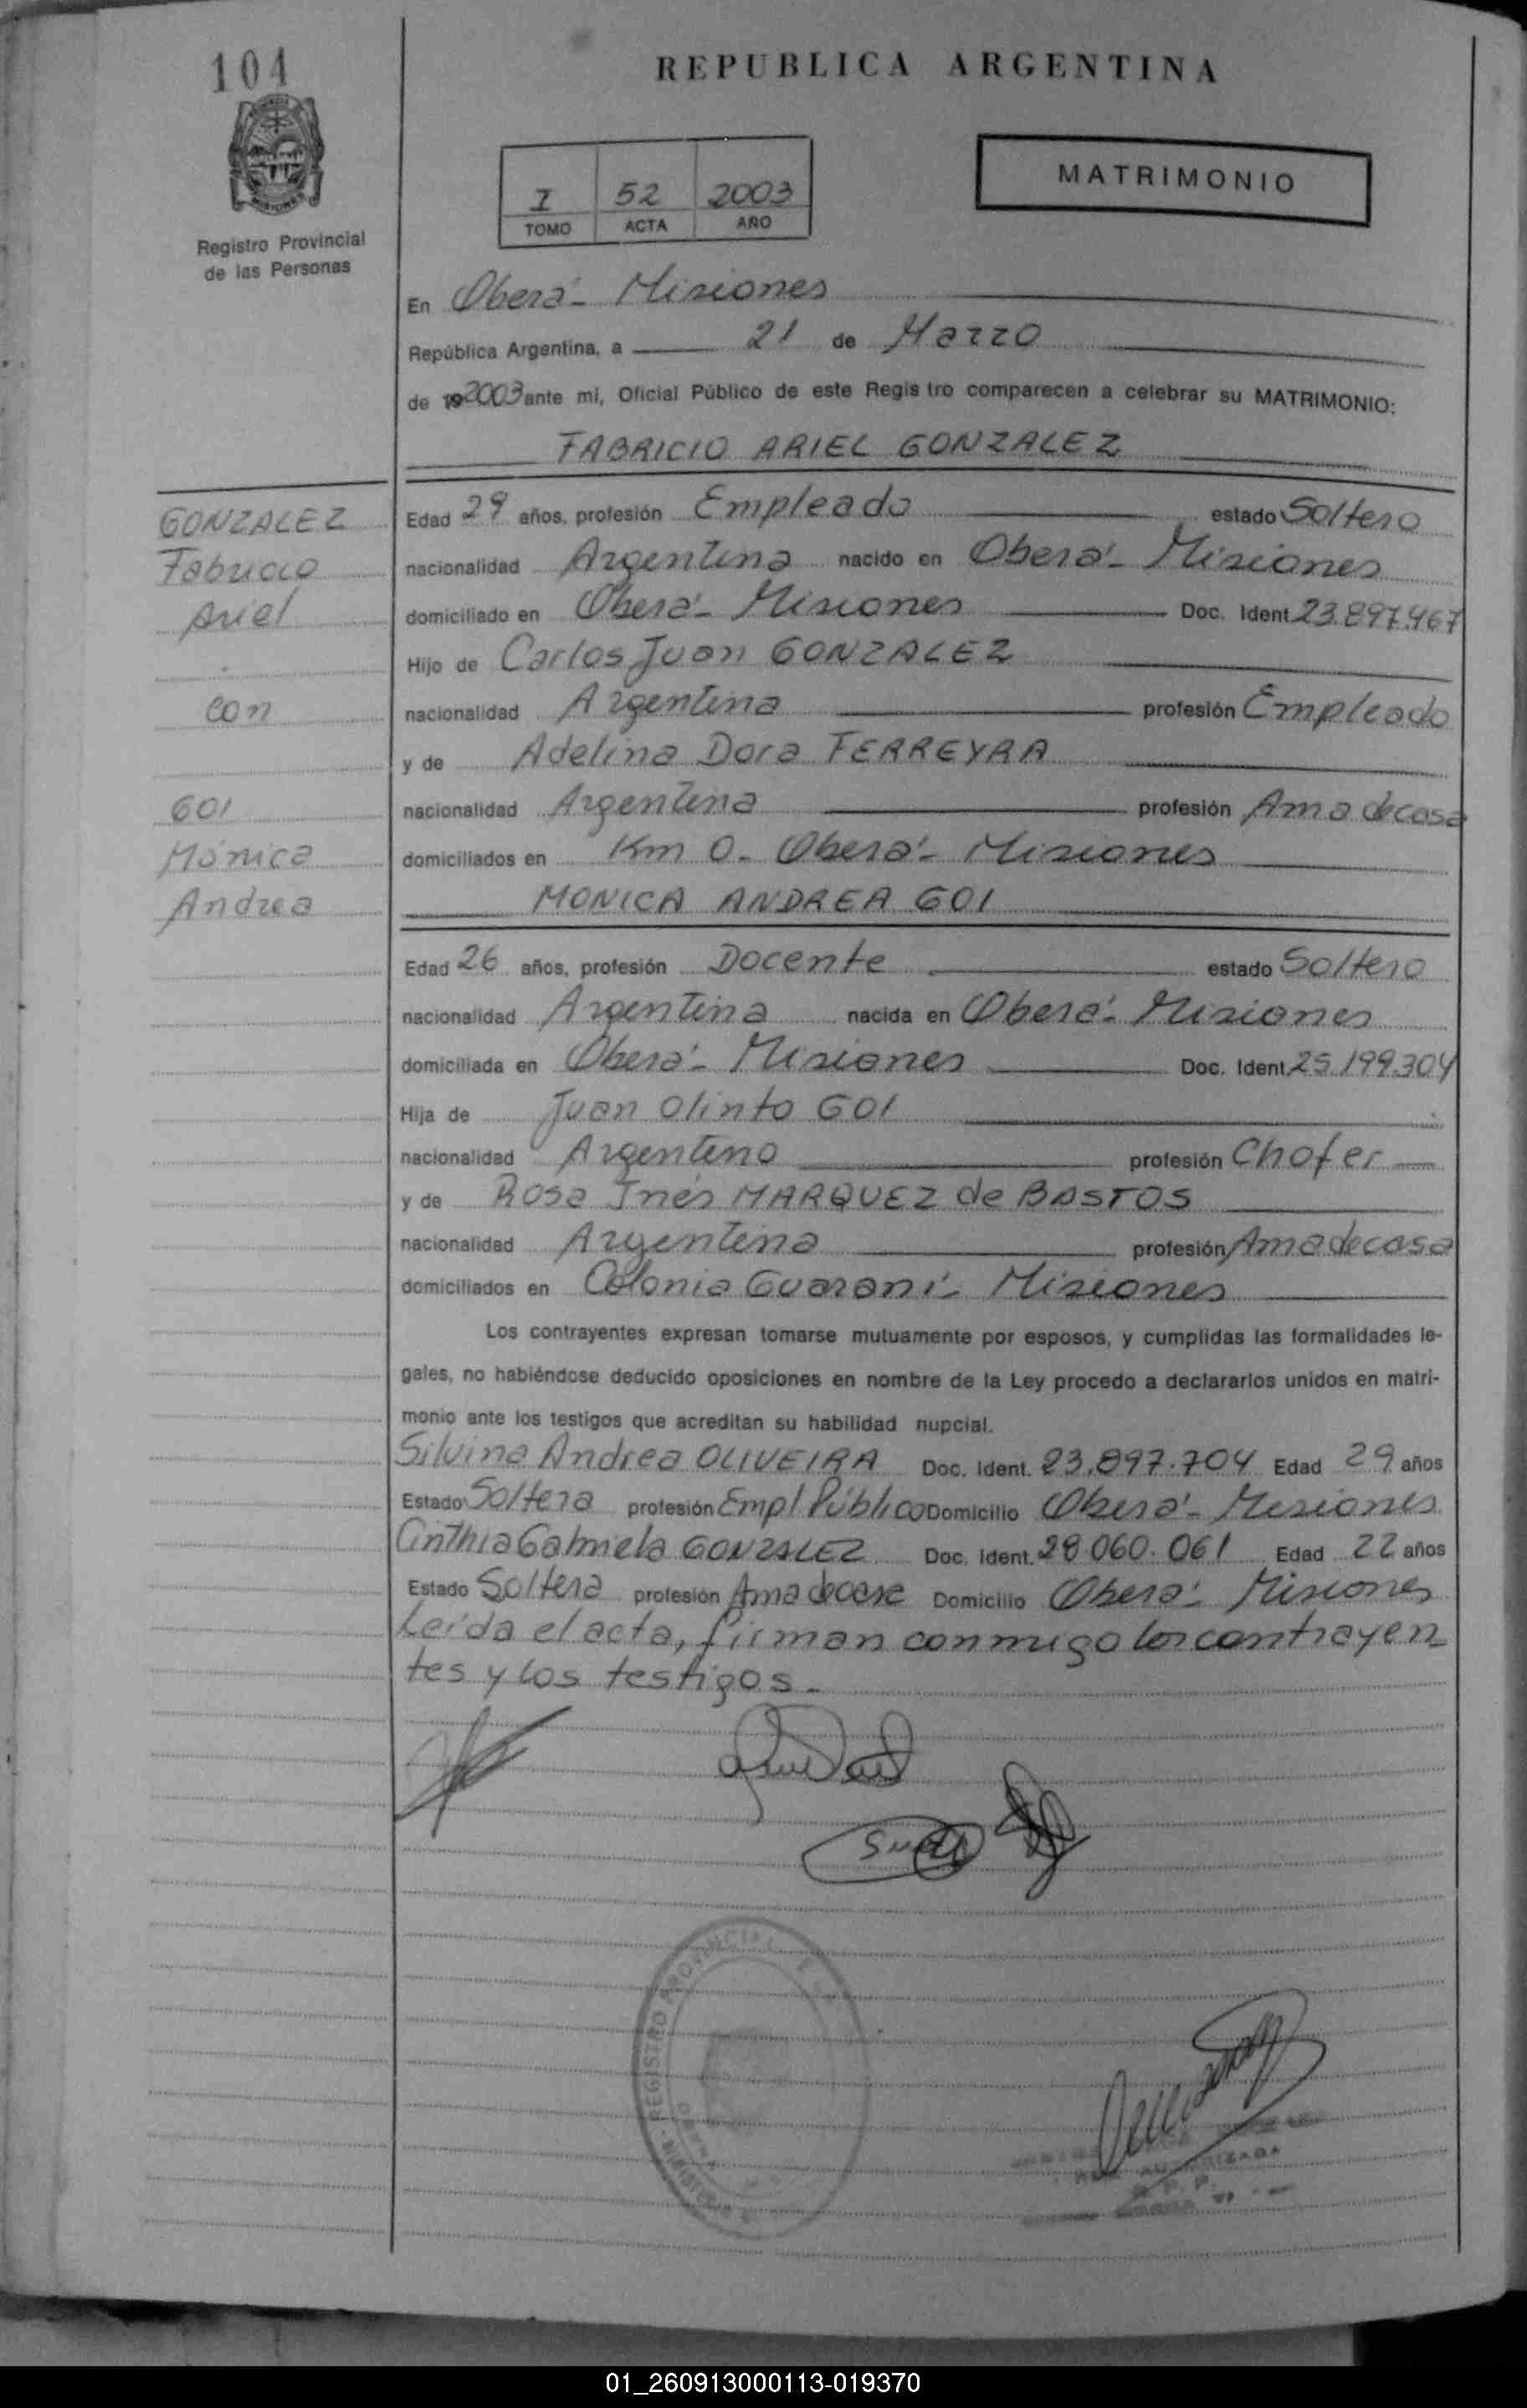 104
REPUBLICA ARGENTINA
MATRIMONIO
I 52 2003
TOMO ACTA AÑO
Registro Provincial
de las Personas
En Oberá - Misiones
República Argentina, a 21 de Marzo
de 192003 ante mi, Oficial Público de este Regis tro comparecen a celebrar su MATRIMONIO:
FABRICIO ARIEL GONZALEZ
GONZALEZ
Fabricio
Ariel
con
GOI
Mónica
Andrea
Edad 29 años, profesión Empleado estado Soltero
nacionalidad Argentina nacido en Oberá - Misiones
domiciliado en Oberá - Misiones Doc. Ident. 23.897.467
Hijo de Carlos Juan GONZALEZ
nacionalidad Argentina profesión Empleado
y de Adelina Dora FERREYRA
nacionalidad Argentina profesión Ama de casa
domiciliados en Km 0 - Oberá - Misiones
MONICA ANDREA GOI
Edad 26 años, profesión Docente estado Soltero
nacionalidad Argentina nacida en Oberá - Misiones
domiciliada en Oberá - Misiones Doc. Ident. 25.199.304
Hija de Juan Olinto GOI
nacionalidad Argentino profesión Chofer
y de Rosa Inés MARQUEZ de BASTOS
nacionalidad Argentina profesión Ama de casa
domiciliados en Colonia Guaraní - Misiones
Los contrayentes expresan tomarse mutuamente por esposos, y cumplidas las formalidades le-
gales, no habiéndose deducido oposiciones en nombre de la Ley procedo a declararlos unidos en matri-
monio ante los testigos que acreditan su habilidad nupcial.
Silvina Andrea OLIVEIRA Doc. Ident. 23.897.704 Edad 29 años
Estado Soltera profesión Empl. Público Domicilio Oberá - Misiones
Cinthia Gabriela GONZALEZ Doc. Ident. 28.060.061 Edad 22 años
Estado Soltera profesión Ama de casa Domicilio Oberá - Misiones
Leída el acta, firman conmigo los contrayen-
tes y los testigos.-
REGISTRO PROVINCIAL
01_260913000113-019370